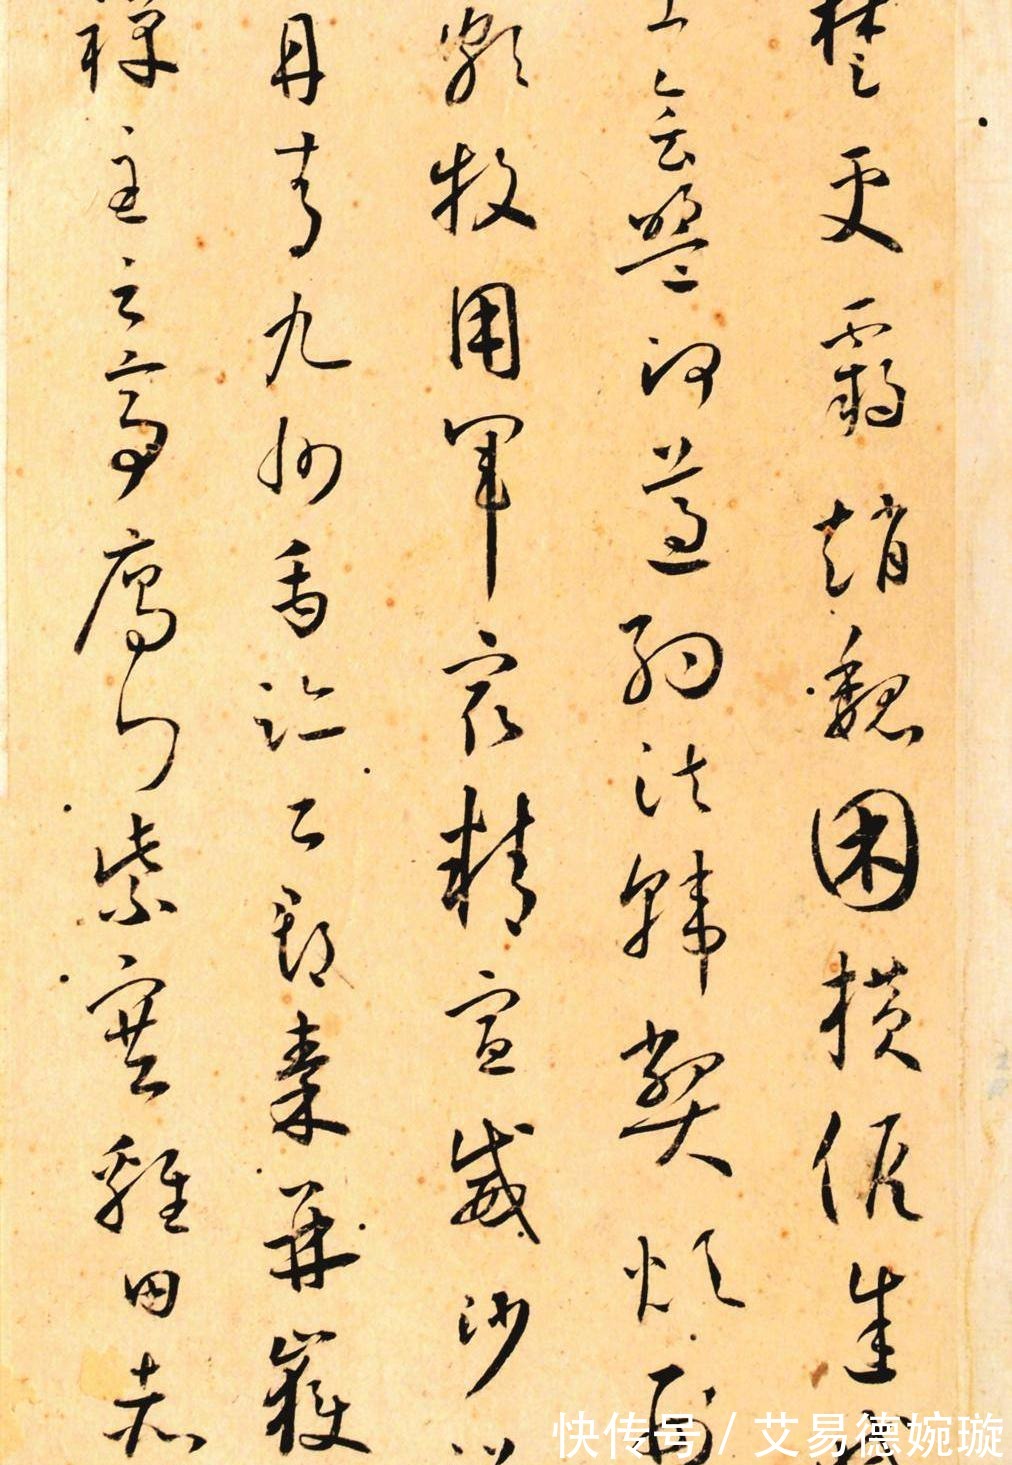 楚更霸趙魏困橫假途滅
土會盟何遵約法韓弊煩刑
頗牧用軍最精宣威沙漠
丹青九州禹跡百郡秦并嶽
禪主云亭雁門紫塞雞田赤
快传号/艾易德婉璇